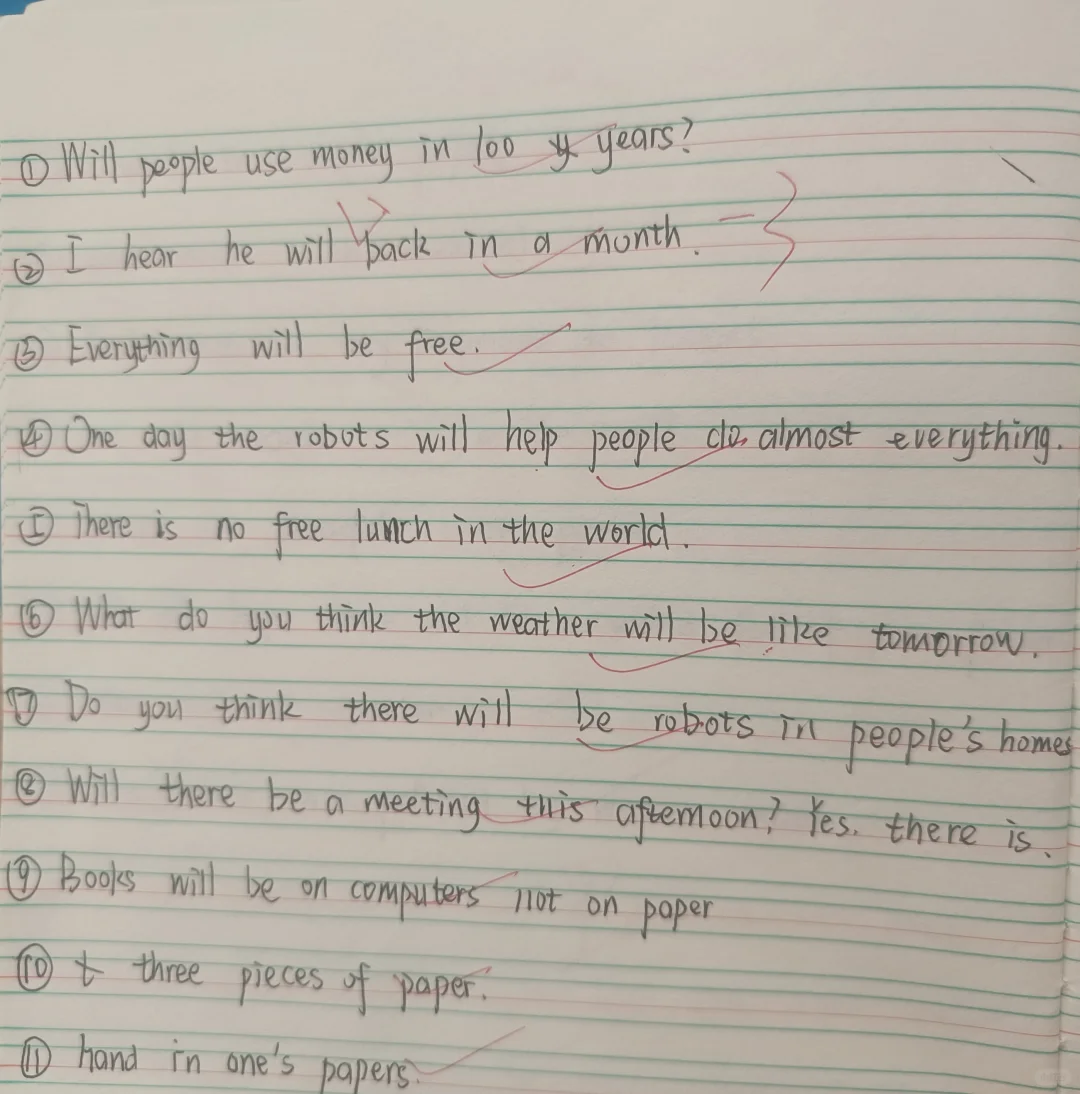 ① Will people use money in 100 years?
② I hear he will back in a month.
③ Everything will be free.
④ One day the robots will help people do almost everything.
⑤ There is no free lunch in the world.
⑥ What do you think the weather will be like tomorrow.
⑦ Do you think there will be robots in people's homes
⑧ Will there be a meeting this afternoon? Yes. there is.
⑨ Books will be on computers not on paper
⑩ three pieces of paper.
⑪ hand in one's papers.